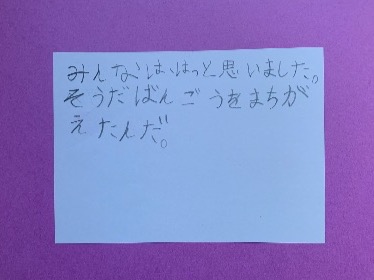 みんなは、はっと思いました。
そうだばんごうをまちが
えたんだ。